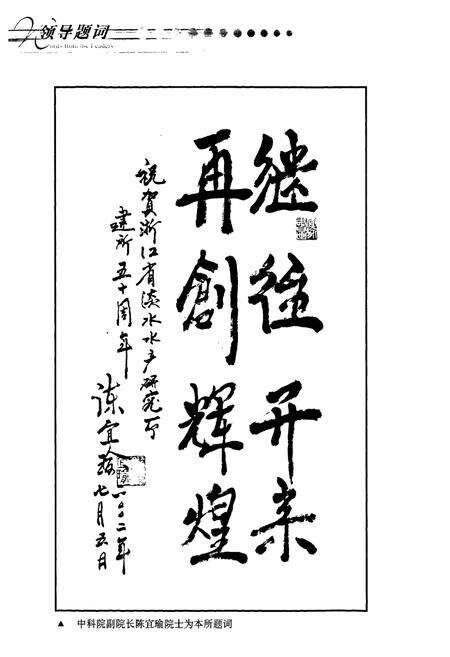 领导题词
Words from the Leaders
继往开来
再創辉煌
祝賀浙江省淡水水产研究所
建所五十周年
陈宜瑜
二〇〇二年
七月五日
▲ 中科院副院长陈宜瑜院士为本所题词